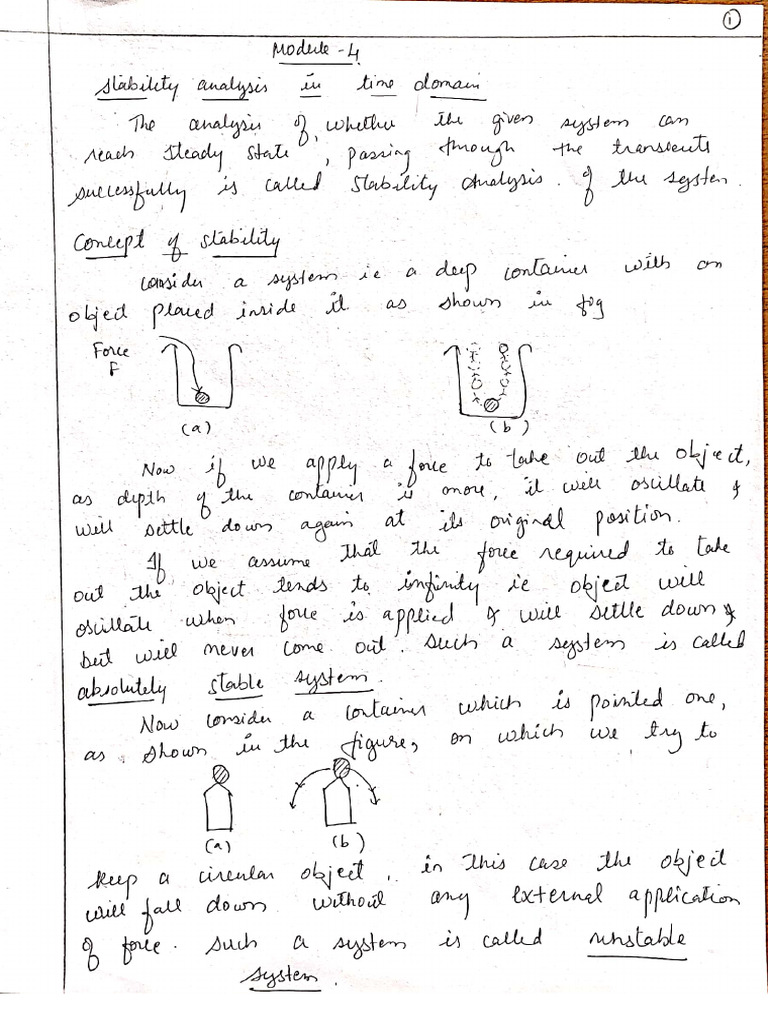 1
Module - 4
Stability analysis in time domain
The analysis of, whether the given system can
reach steady state, passing through the transients
successfully is called Stability Analysis. of the system.
Concept of stability
Consider a system ie a deep container with an
object placed inside it as shown in fig
Force
F
(a) (b)
Now if we apply a force to take out the object,
as depth of the container is more, it will oscillate &
will settle down again at its original position.
If we assume that the force required to take
out the object tends to infinity ie object will
oscillate when force is applied & will settle down &
but will never come out. Such a system is called
absolutely stable system.
Now consider a container which is pointed one,
as shown in the figure, on which we try to
(a) (b)
keep a circular object. in this case the object
will fall down without any external application
of force. Such a system is called unstable
system.